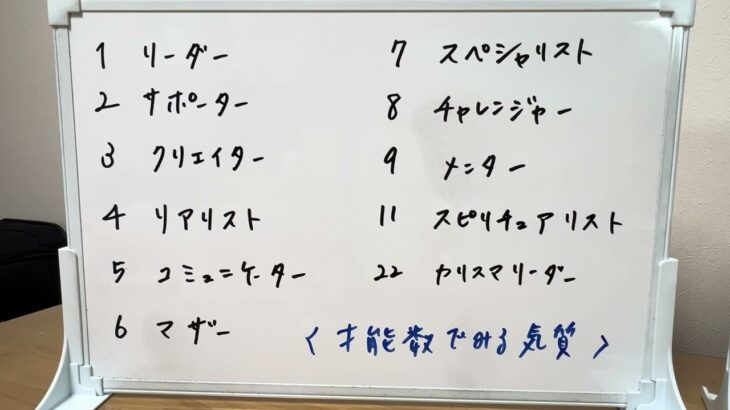 1 リーダー
2 サポーター
3 クリエイター
4 リアリスト
5 コミュニケーター
6 マザー
7 スペシャリスト
8 チャレンジャー
9 メンター
11 スピリチュアリスト
22 カリスマリーダー
〈才能数でみる気質〉